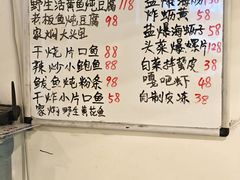 野生活黄鱼炖豆腐 118
老板鱼炖豆腐 98
家焖大头鱼
干烧片口鱼 88
辣炒小鲍鱼 88
鲅鱼炖粉条 98
干炸小片口鱼 58
家焖野生黄花鱼
盐爆海
炸蛎黄 38
盐爆海肠子 58
头菜爆螺片 128
白菜拌蜇皮 38
嘎吧虾 48
自制皮冻 38